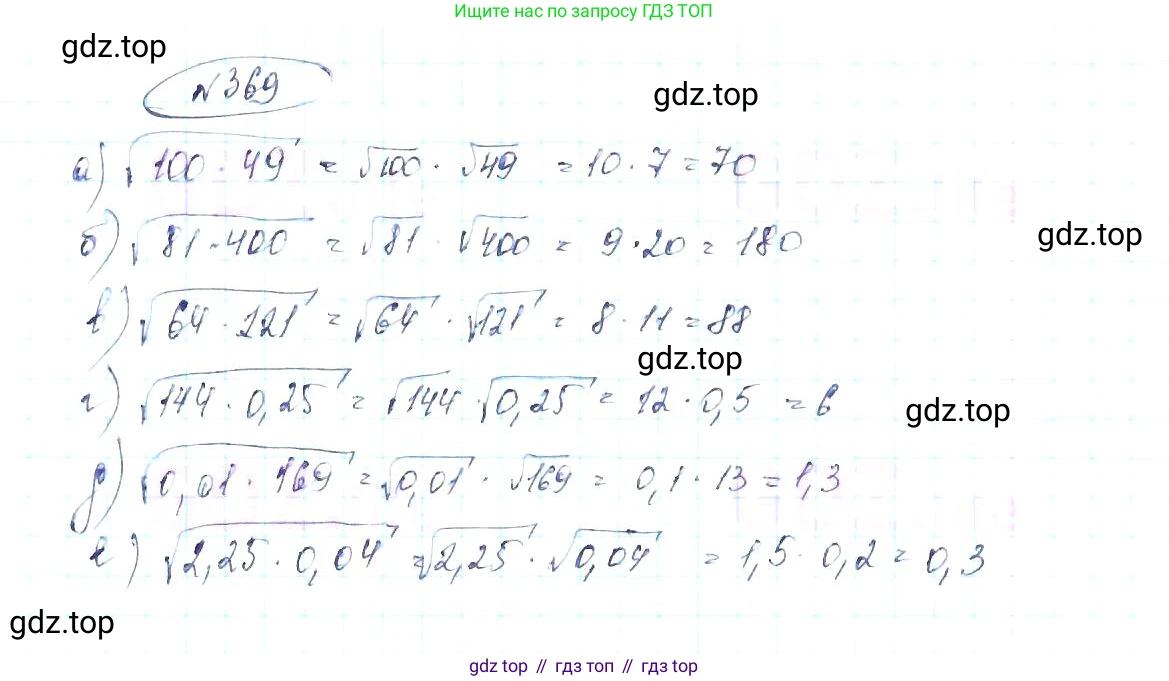 Ищите нас по запросу ГДЗ ТОП
gdz.top
№369
gdz.top
а) √(100 · 49) = √100 · √49 = 10 · 7 = 70
б) √(81 · 400) = √81 · √400 = 9 · 20 = 180
gdz.top
в) √(64 · 121) = √64 · √121 = 8 · 11 = 88
gdz.top
г) √(144 · 0,25) = √144 · √0,25 = 12 · 0,5 = 6
gdz.top
д) √(0,01 · 169) = √0,01 · √169 = 0,1 · 13 = 1,3
е) √(2,25 · 0,04) = √2,25 · √0,04 = 1,5 · 0,2 = 0,3
gdz.top
gdz top // гдз топ // гдз top